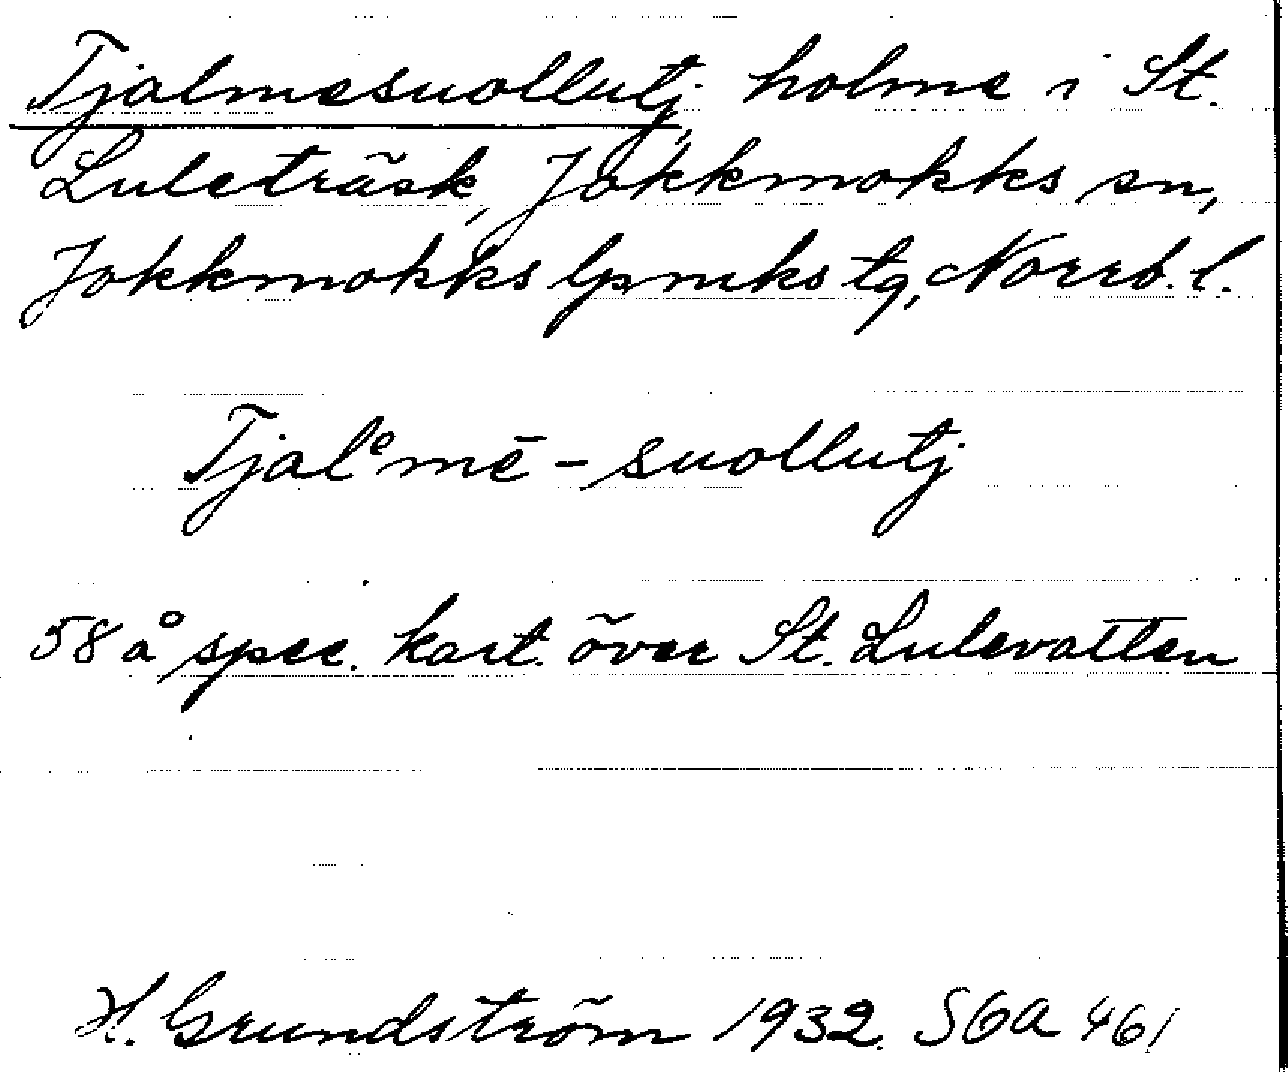 Tjalmesuollutj, holme i St.
Luleträsk, Jokkmokks sn,
Jokkmokks lpmks tg, Norrb. l.
Tjalᵉmē-suollutj
58 å spec. kart. över St. Lulevatten
H. Grundström 1932. SGA 461